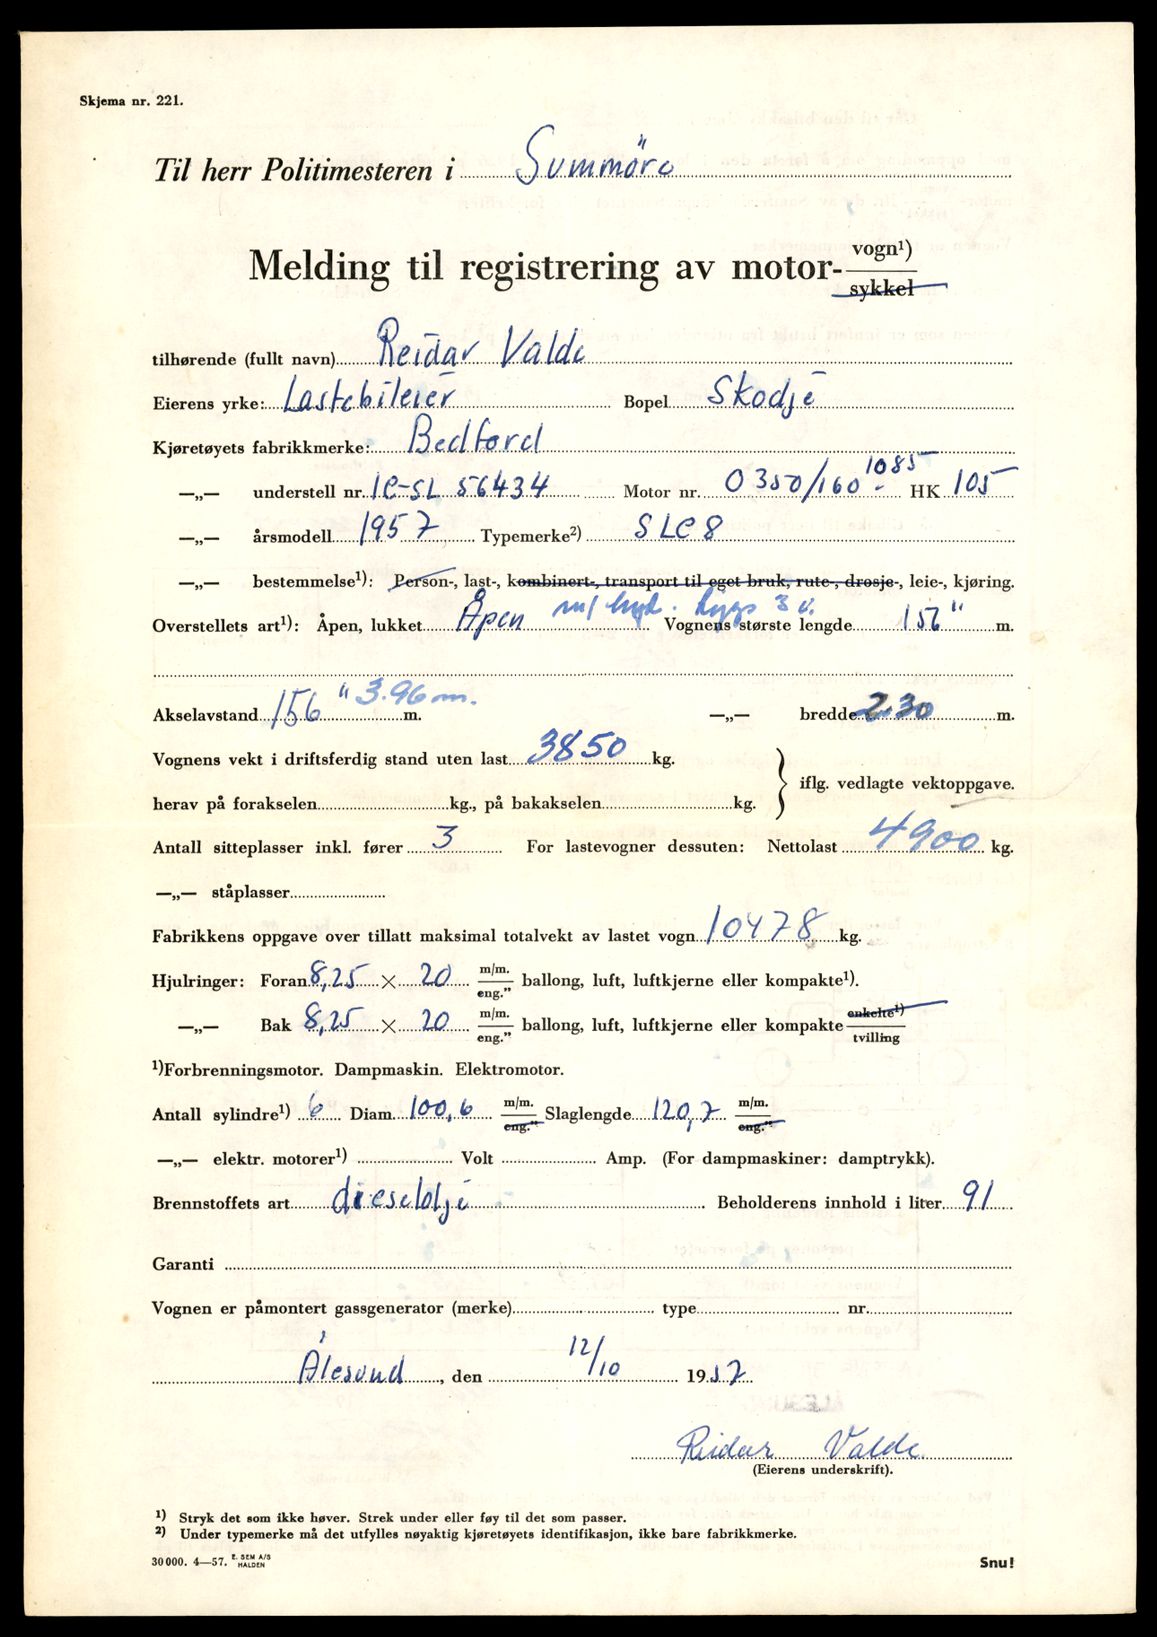 Skjema nr. 221.
Til herr Politimesteren i Sunnmöre
Melding til registrering av motor- vogn¹)
sykkel
tilhørende (fullt navn) Reidar Valde
Eierens yrke: Lastebileier Bopel Skodje
Kjøretøyets fabrikkmerke: Bedford
—„— understell nr. 1C-SL 56434 Motor nr. O 350/160-1085 HK 105
—„— årsmodell 1957 Typemerke²) SLC 8
—„— bestemmelse¹): Person-, last-, kombinert-, transport til eget bruk, rute-, drosje-, leie-, kjøring.
Overstellets art¹): Åpen, lukket Åpen m/ hyd. Vognens største lengde 156" m.
Akselavstand 156" 3.96 m. m. —„— bredde 2.30 m.
Vognens vekt i driftsferdig stand uten last 3850 kg.
iflg. vedlagte vektoppgave.
herav på forakselen kg., på bakakselen kg.
Antall sitteplasser inkl. fører 3 For lastevogner dessuten: Nettolast 4900 kg.
—„— ståplasser
Fabrikkens oppgave over tillatt maksimal totalvekt av lastet vogn 10478 kg.
Hjulringer: Foran 8,25 × 20 m/m. eng." ballong, luft, luftkjerne eller kompakte¹).
—„— Bak 8,25 × 20 m/m. eng." ballong, luft, luftkjerne eller kompakte enkelte¹) tvilling
¹)Forbrenningsmotor. Dampmaskin. Elektromotor.
Antall sylindre¹) 6 Diam. 100,6 m/m. eng." Slaglengde 120,7 m/m. eng."
—„— elektr. motorer¹) Volt Amp. (For dampmaskiner: damptrykk).
Brennstoffets art dieselolje Beholderens innhold i liter 91
Garanti
Vognen er påmontert gassgenerator (merke) type nr.
Ålesund, den 12/10 1957
Reidar Valde
(Eierens underskrift).
¹) Stryk det som ikke høver. Strek under eller føy til det som passer.
²) Under typemerke må det utfylles nøyaktig kjøretøyets identifikasjon, ikke bare fabrikkmerke.
30 000. 4—57. E. SEM A/S HALDEN
Snu!